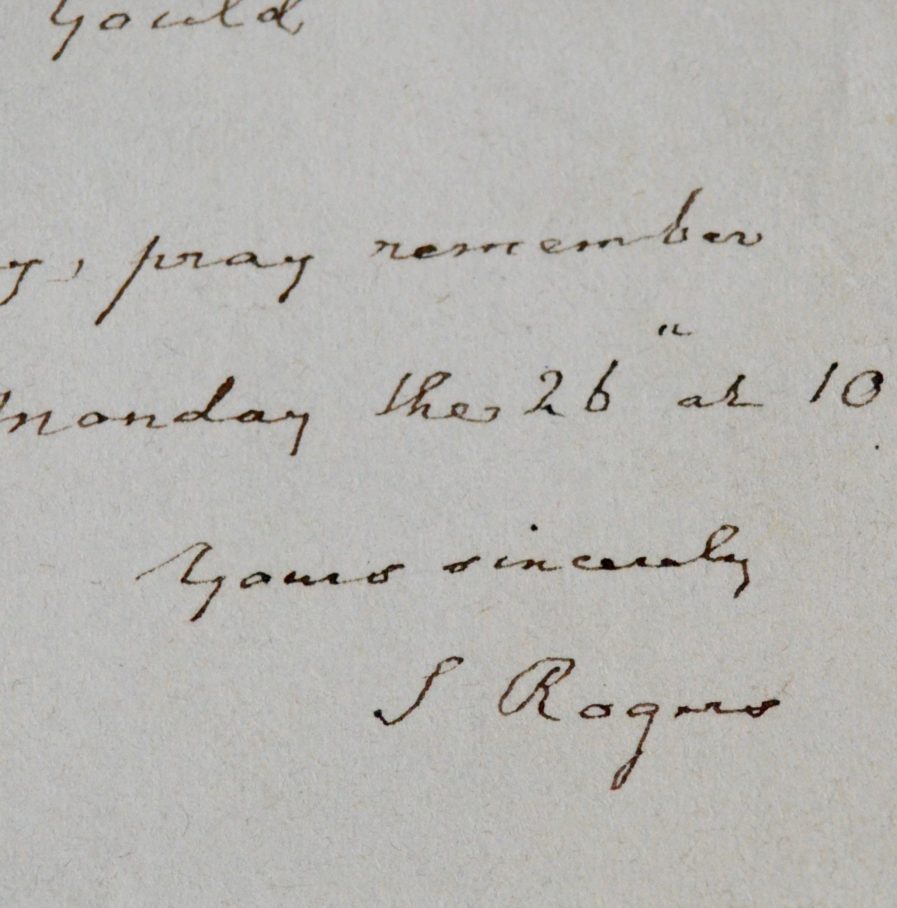 Gould
y, pray remember
Monday the 26" at 10.
Yours sincerely
S Rogers